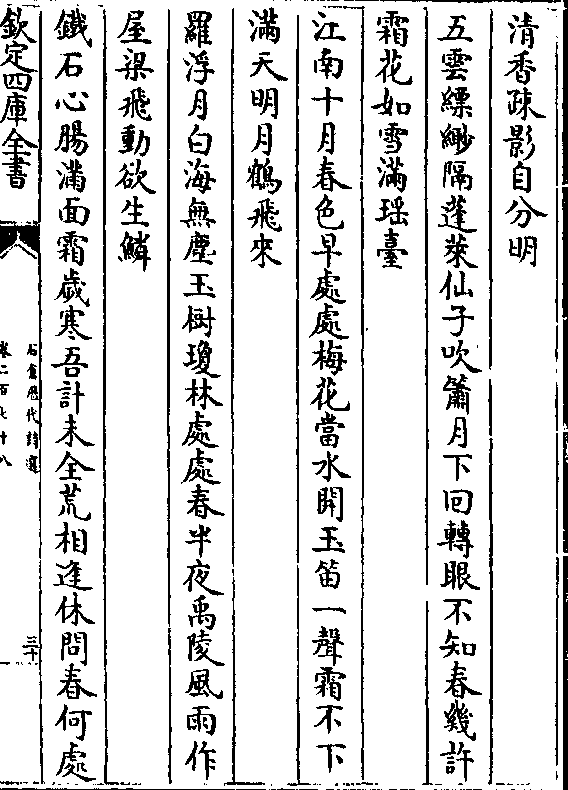 清香疎影自分明
五雲縹緲隔蓬萊仙子吹簫月下回轉眼不知春幾許
霜花如雪滿瑶臺
江南十月春色早處處梅花當水開玉笛一聲霜不下
滿天明月鶴飛來
羅浮月白海無塵玉樹瓊林處處春半夜禹陵風雨作
屋梁飛動欲生鱗
鐵石心腸滿面霜歲寒吾計未全荒相逢休問春何處
欽定四庫全書
石倉歷代詩選
卷二百七十八
三十